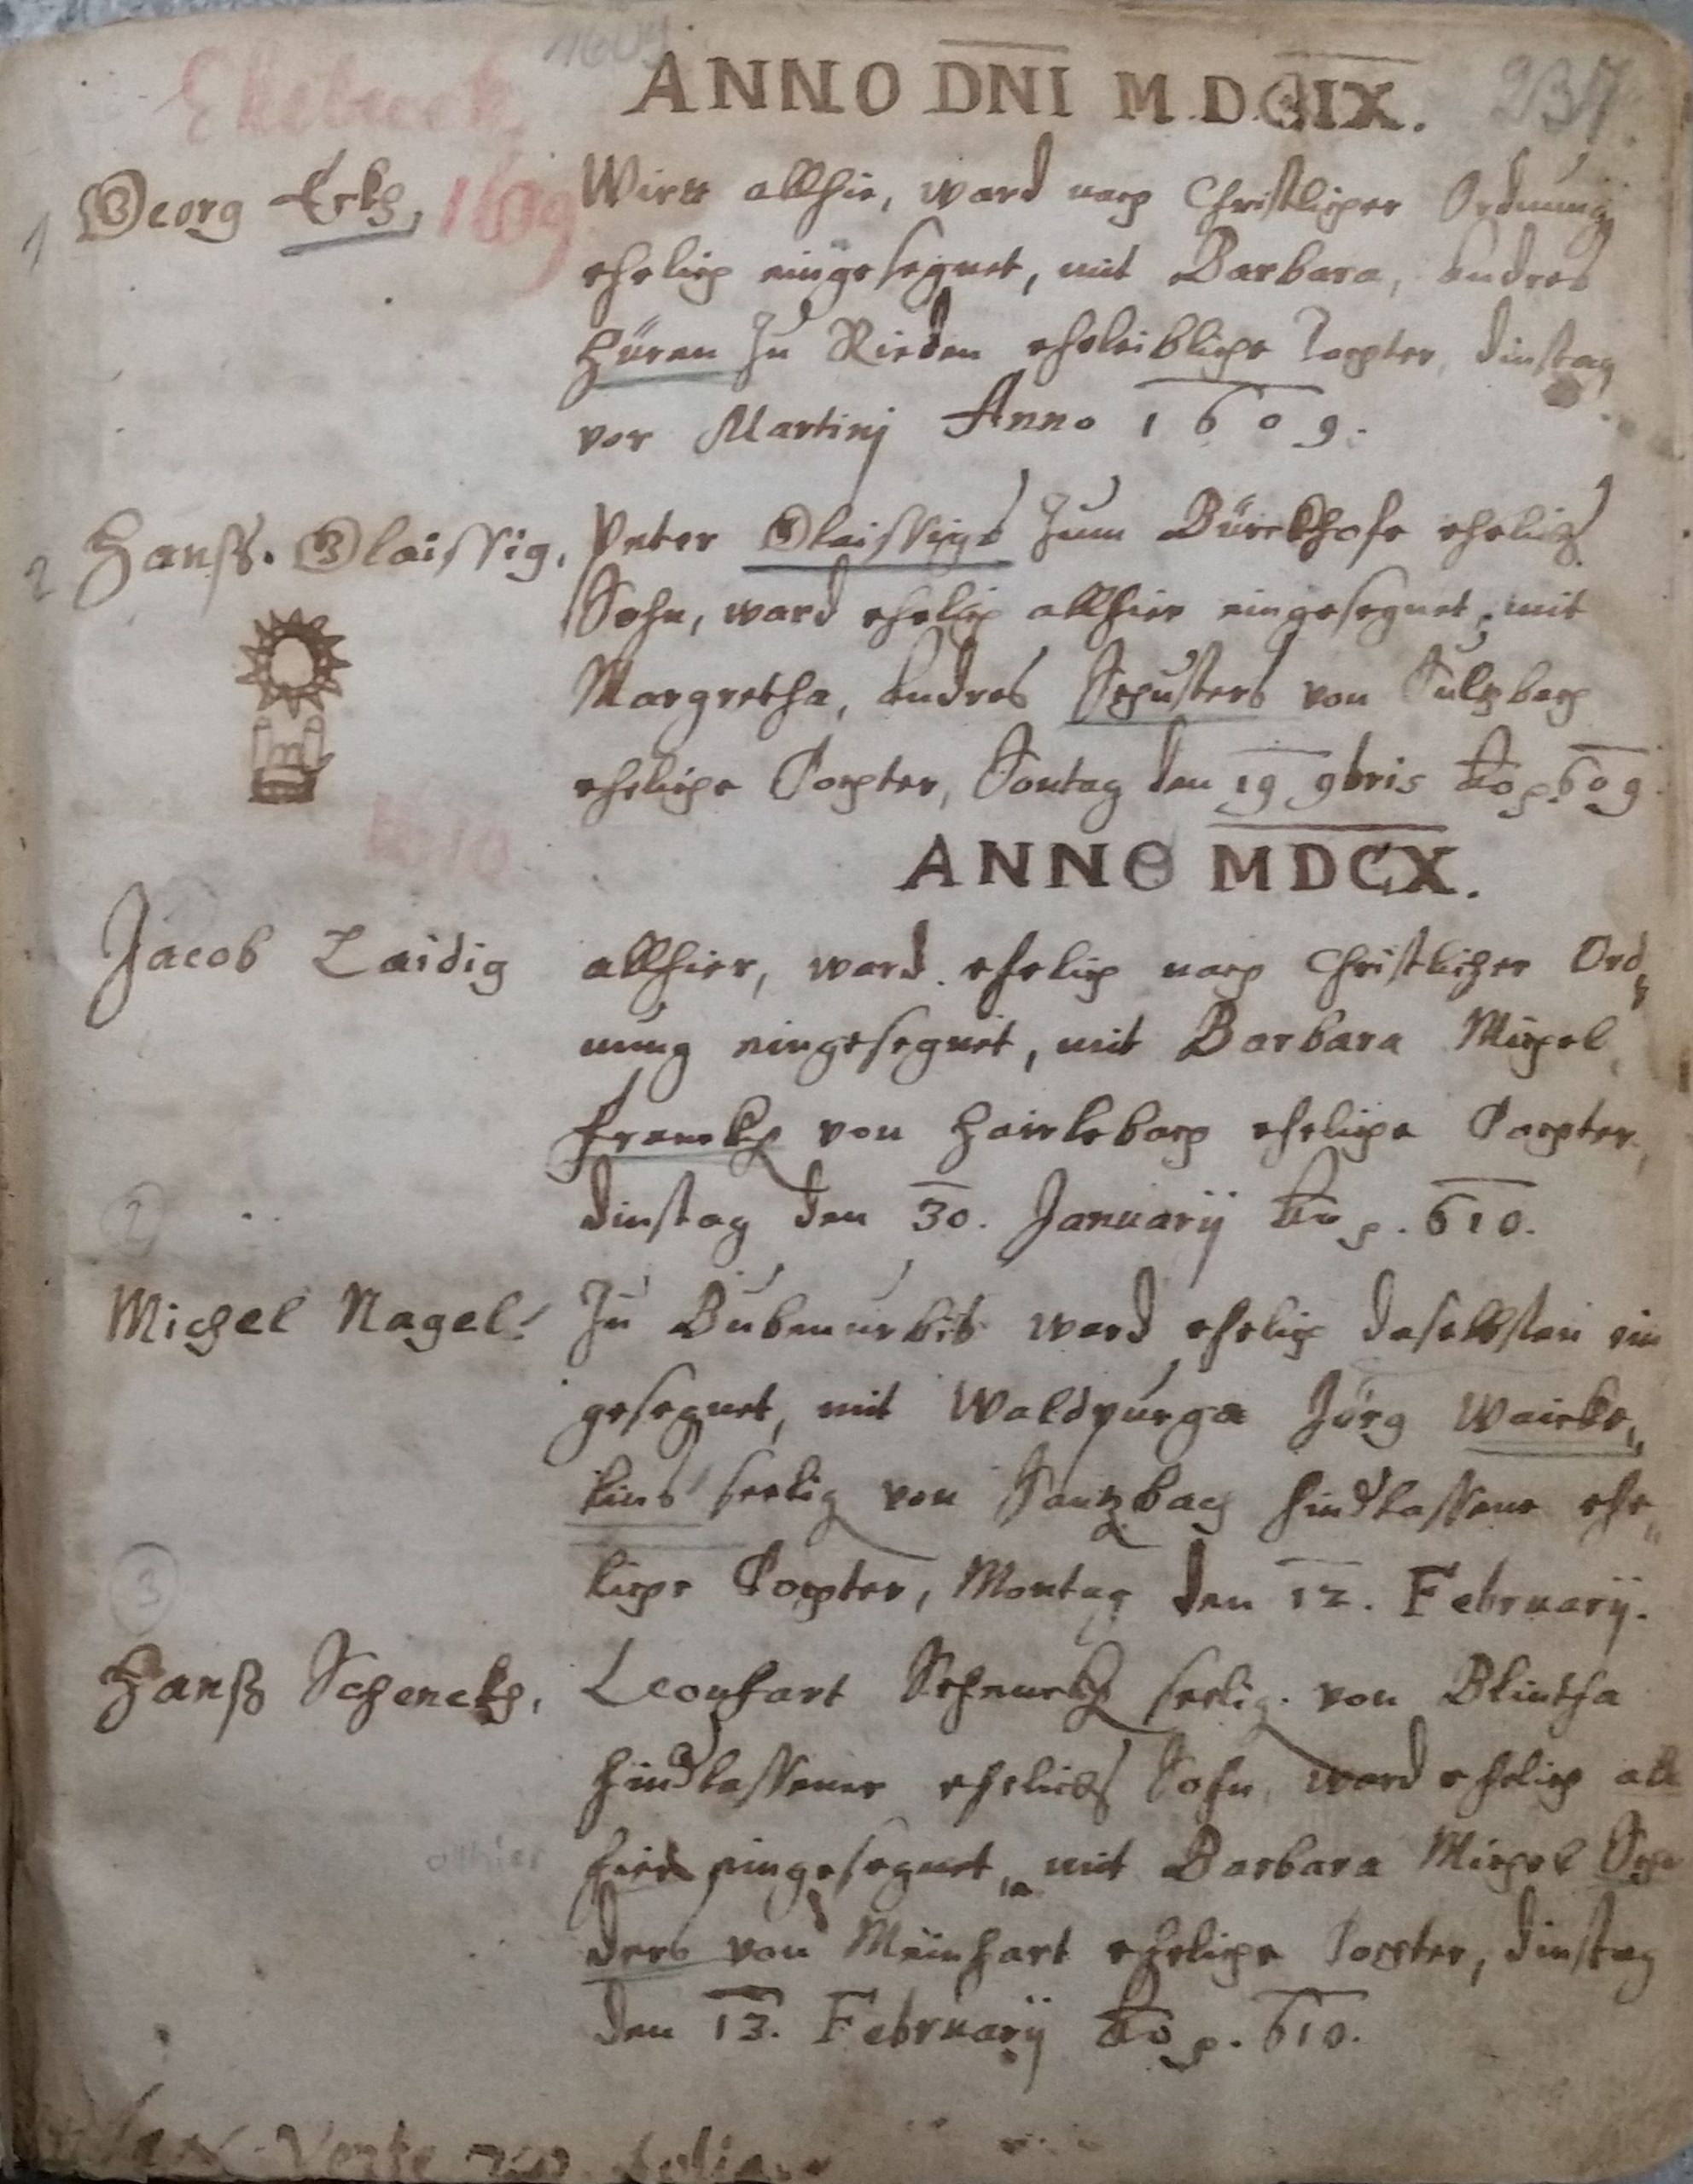 Ehebuch 1609 237
ANNO DNI M.D.CIX.
1 Georg Erkh, 1609 Wirtt allhie, ward nach Christlicher Ordnung
ehelich eingesegnet, mit Barbara, Endres
Hüren zu Rieden eheleibliche Tochter, dinstag
vor Martinj Anno 1609.
2 Hanß. Glaissig. Peter Glaissigs zum Bürckhofe ehelich
Sohn, ward ehelich allhier eingesegnet, mit
Margretha, Endres Schusters von Sultzbach
eheliche Tochter, Sontag den 19 9bris Ao p. 609.
1610
ANNO MDCX.
Jacob Laidig allhier, ward ehelich nach Christlicher Ord„
nung eingesegnet, mit Barbara Michel
Franckh von Hairlebach eheliche Tochter,
dinstag den 30. Januarij Ao p. 610.
2
Michel Nagel. Zu Bubenurbis ward ehelich daselbsten ein
gesegnet, mit Waldpurga Jörg Waickh„
lins seelig von Santzbach hindlassene ehe„
liche Tochter, Montag den 12. Februarij.
3
Hanß Schenckh, Leonhart Schenckh seelig von Blintha
hindlassener ehelich Sohn, ward ehelich all
allhier hier eingesegnet, mit Barbara Michel
ders von Meinhart eheliche Tochter, dinstag
den 13. Februarij Ao p. 610.